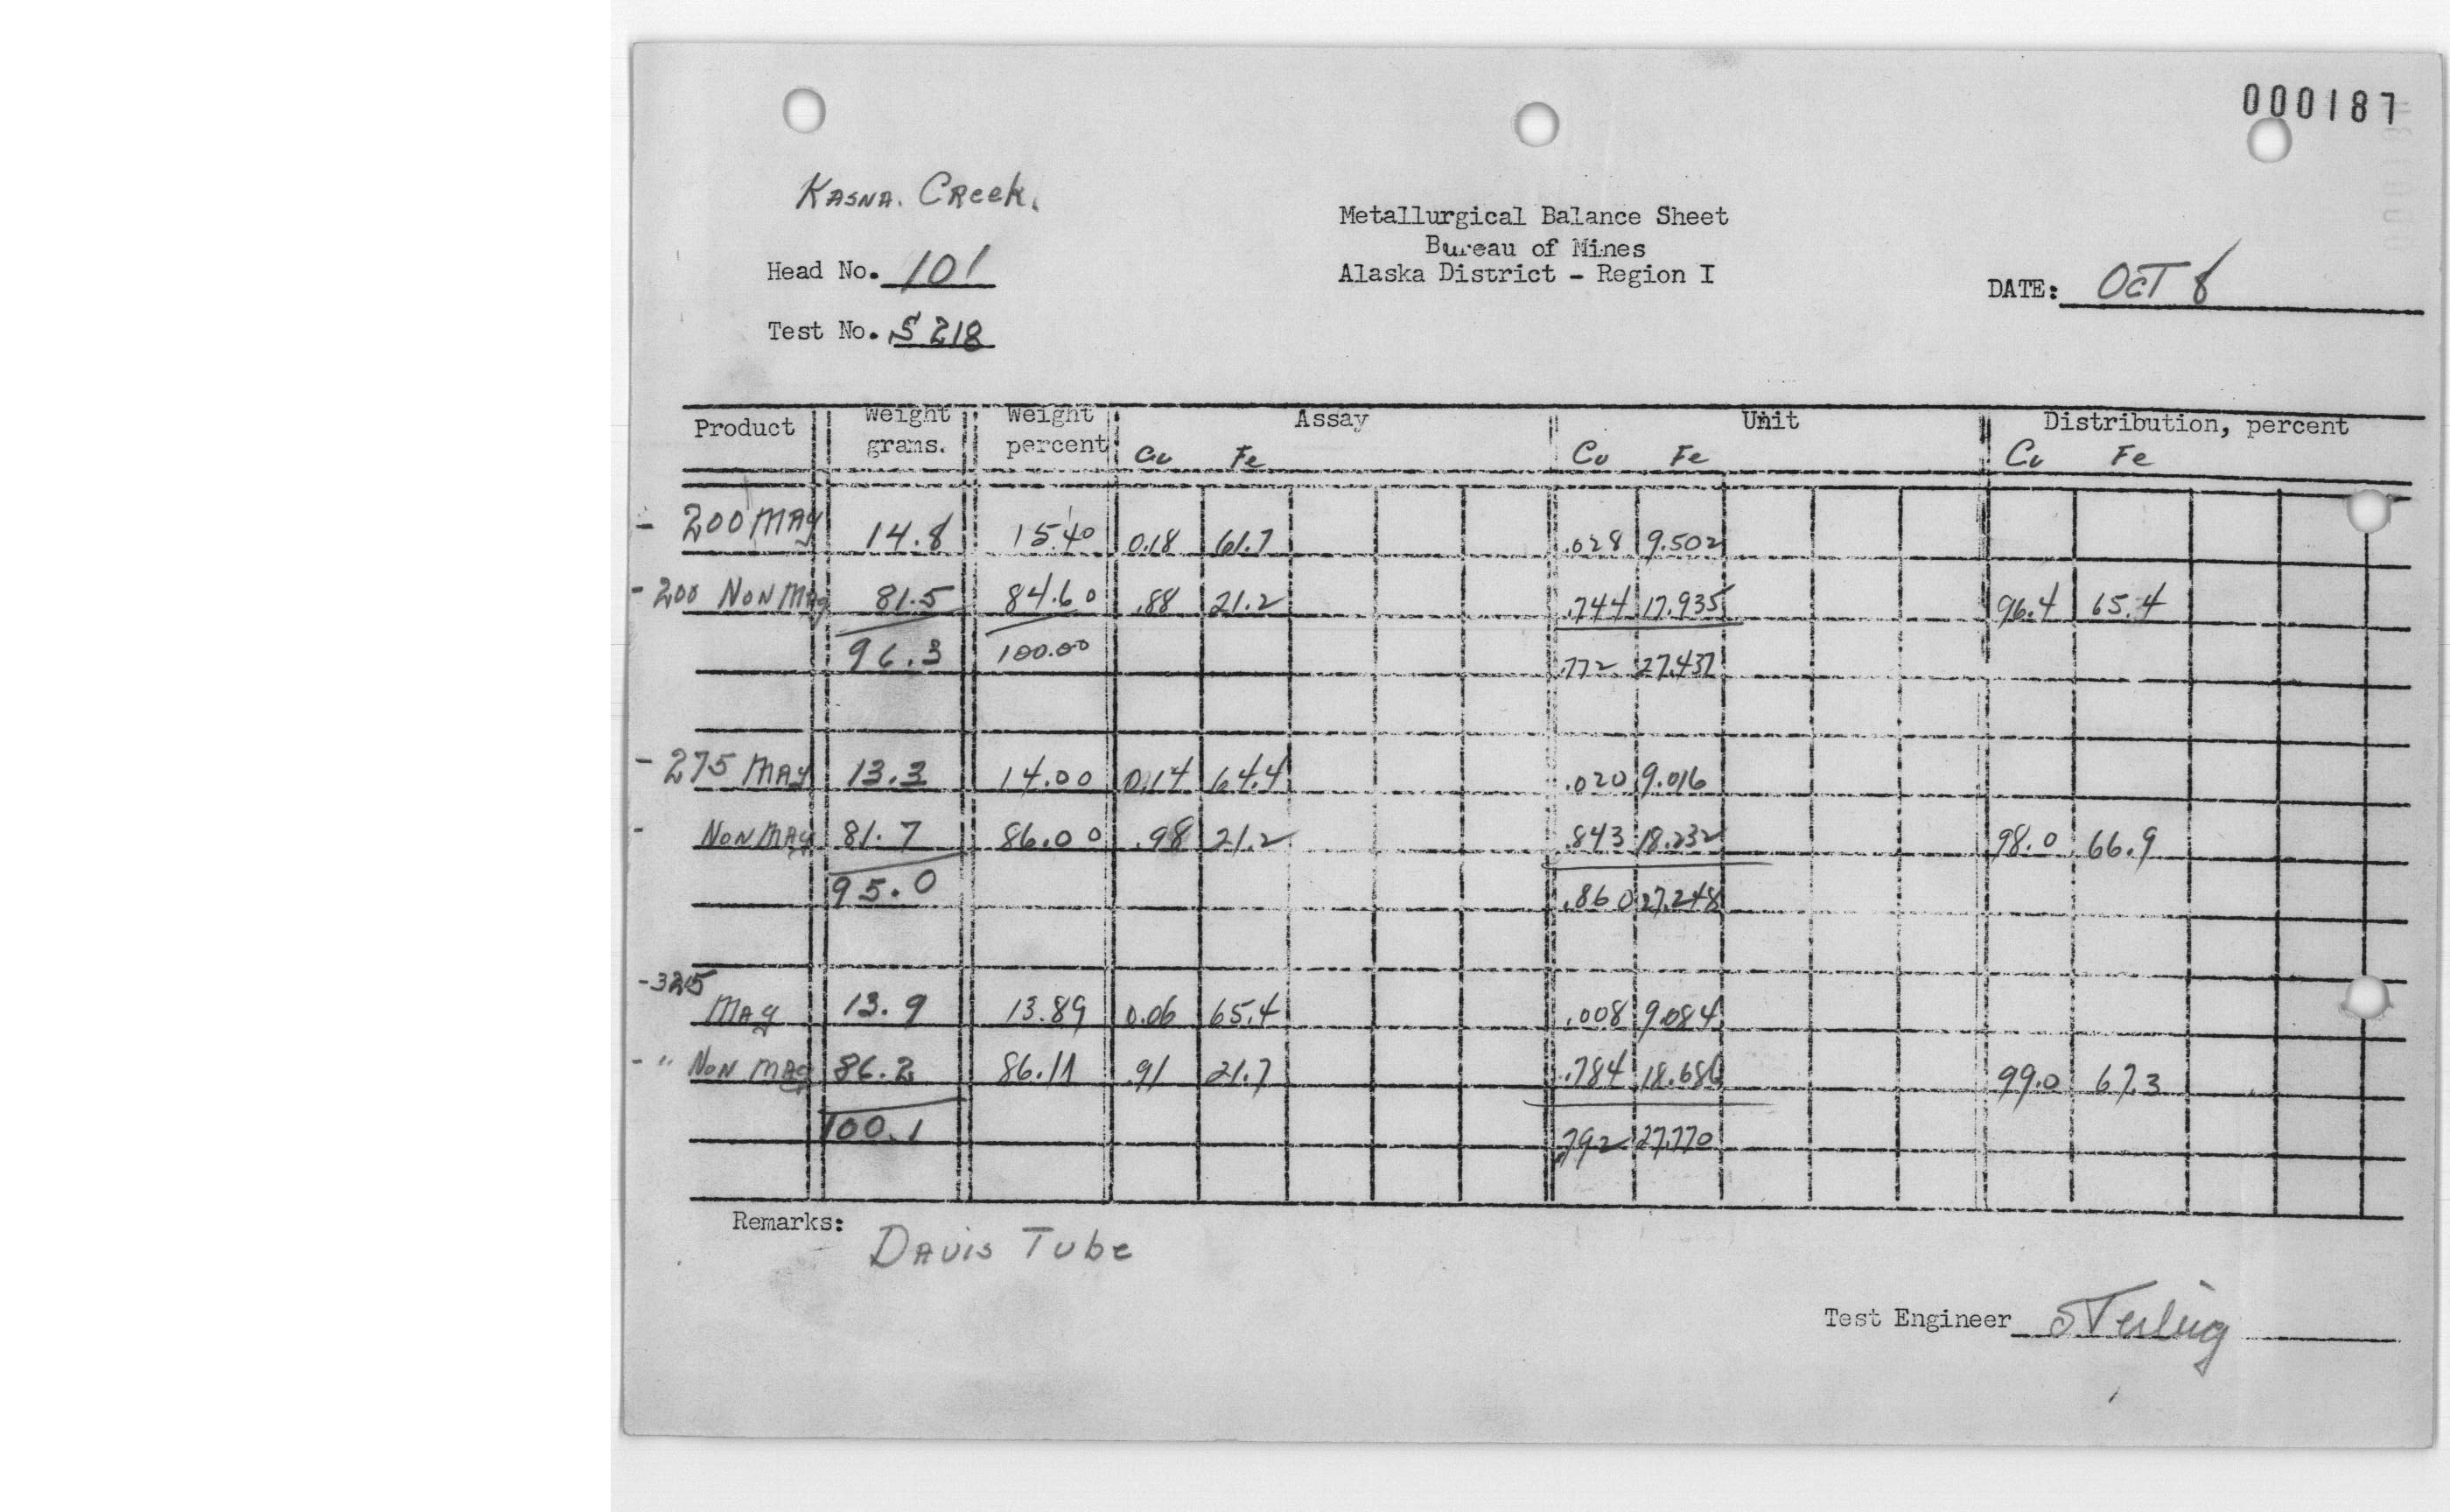 000187
Kasna. Creek.
Metallurgical Balance Sheet
Bureau of Mines
Alaska District - Region I
Head No. 101
DATE: Oct 8
Test No. S 218
Product Weight grams. Weight percent Assay Unit Distribution, percent
Cu Fe Cu Fe Cu Fe
- 200 Mag 14.8 15.40 0.18 61.7 .028 9.502
- 200 Non Mag 81.5 84.60 .88 21.2 .744 17.935 96.4 65.4
96.3 100.00 .772 27.437
- 275 Mag 13.3 14.00 0.14 64.4 .020 9.016
- Non Mag 81.7 86.00 .98 21.2 .843 18.232 98.0 66.9
95.0 .860 27.248
-325
Mag 13.9 13.89 0.06 65.4 .008 9.084
- " Non Mag 86.2 86.11 .91 21.7 .784 18.686 99.0 67.3
100.1 .792 27.770
Remarks: Davis Tube
Test Engineer Sterling